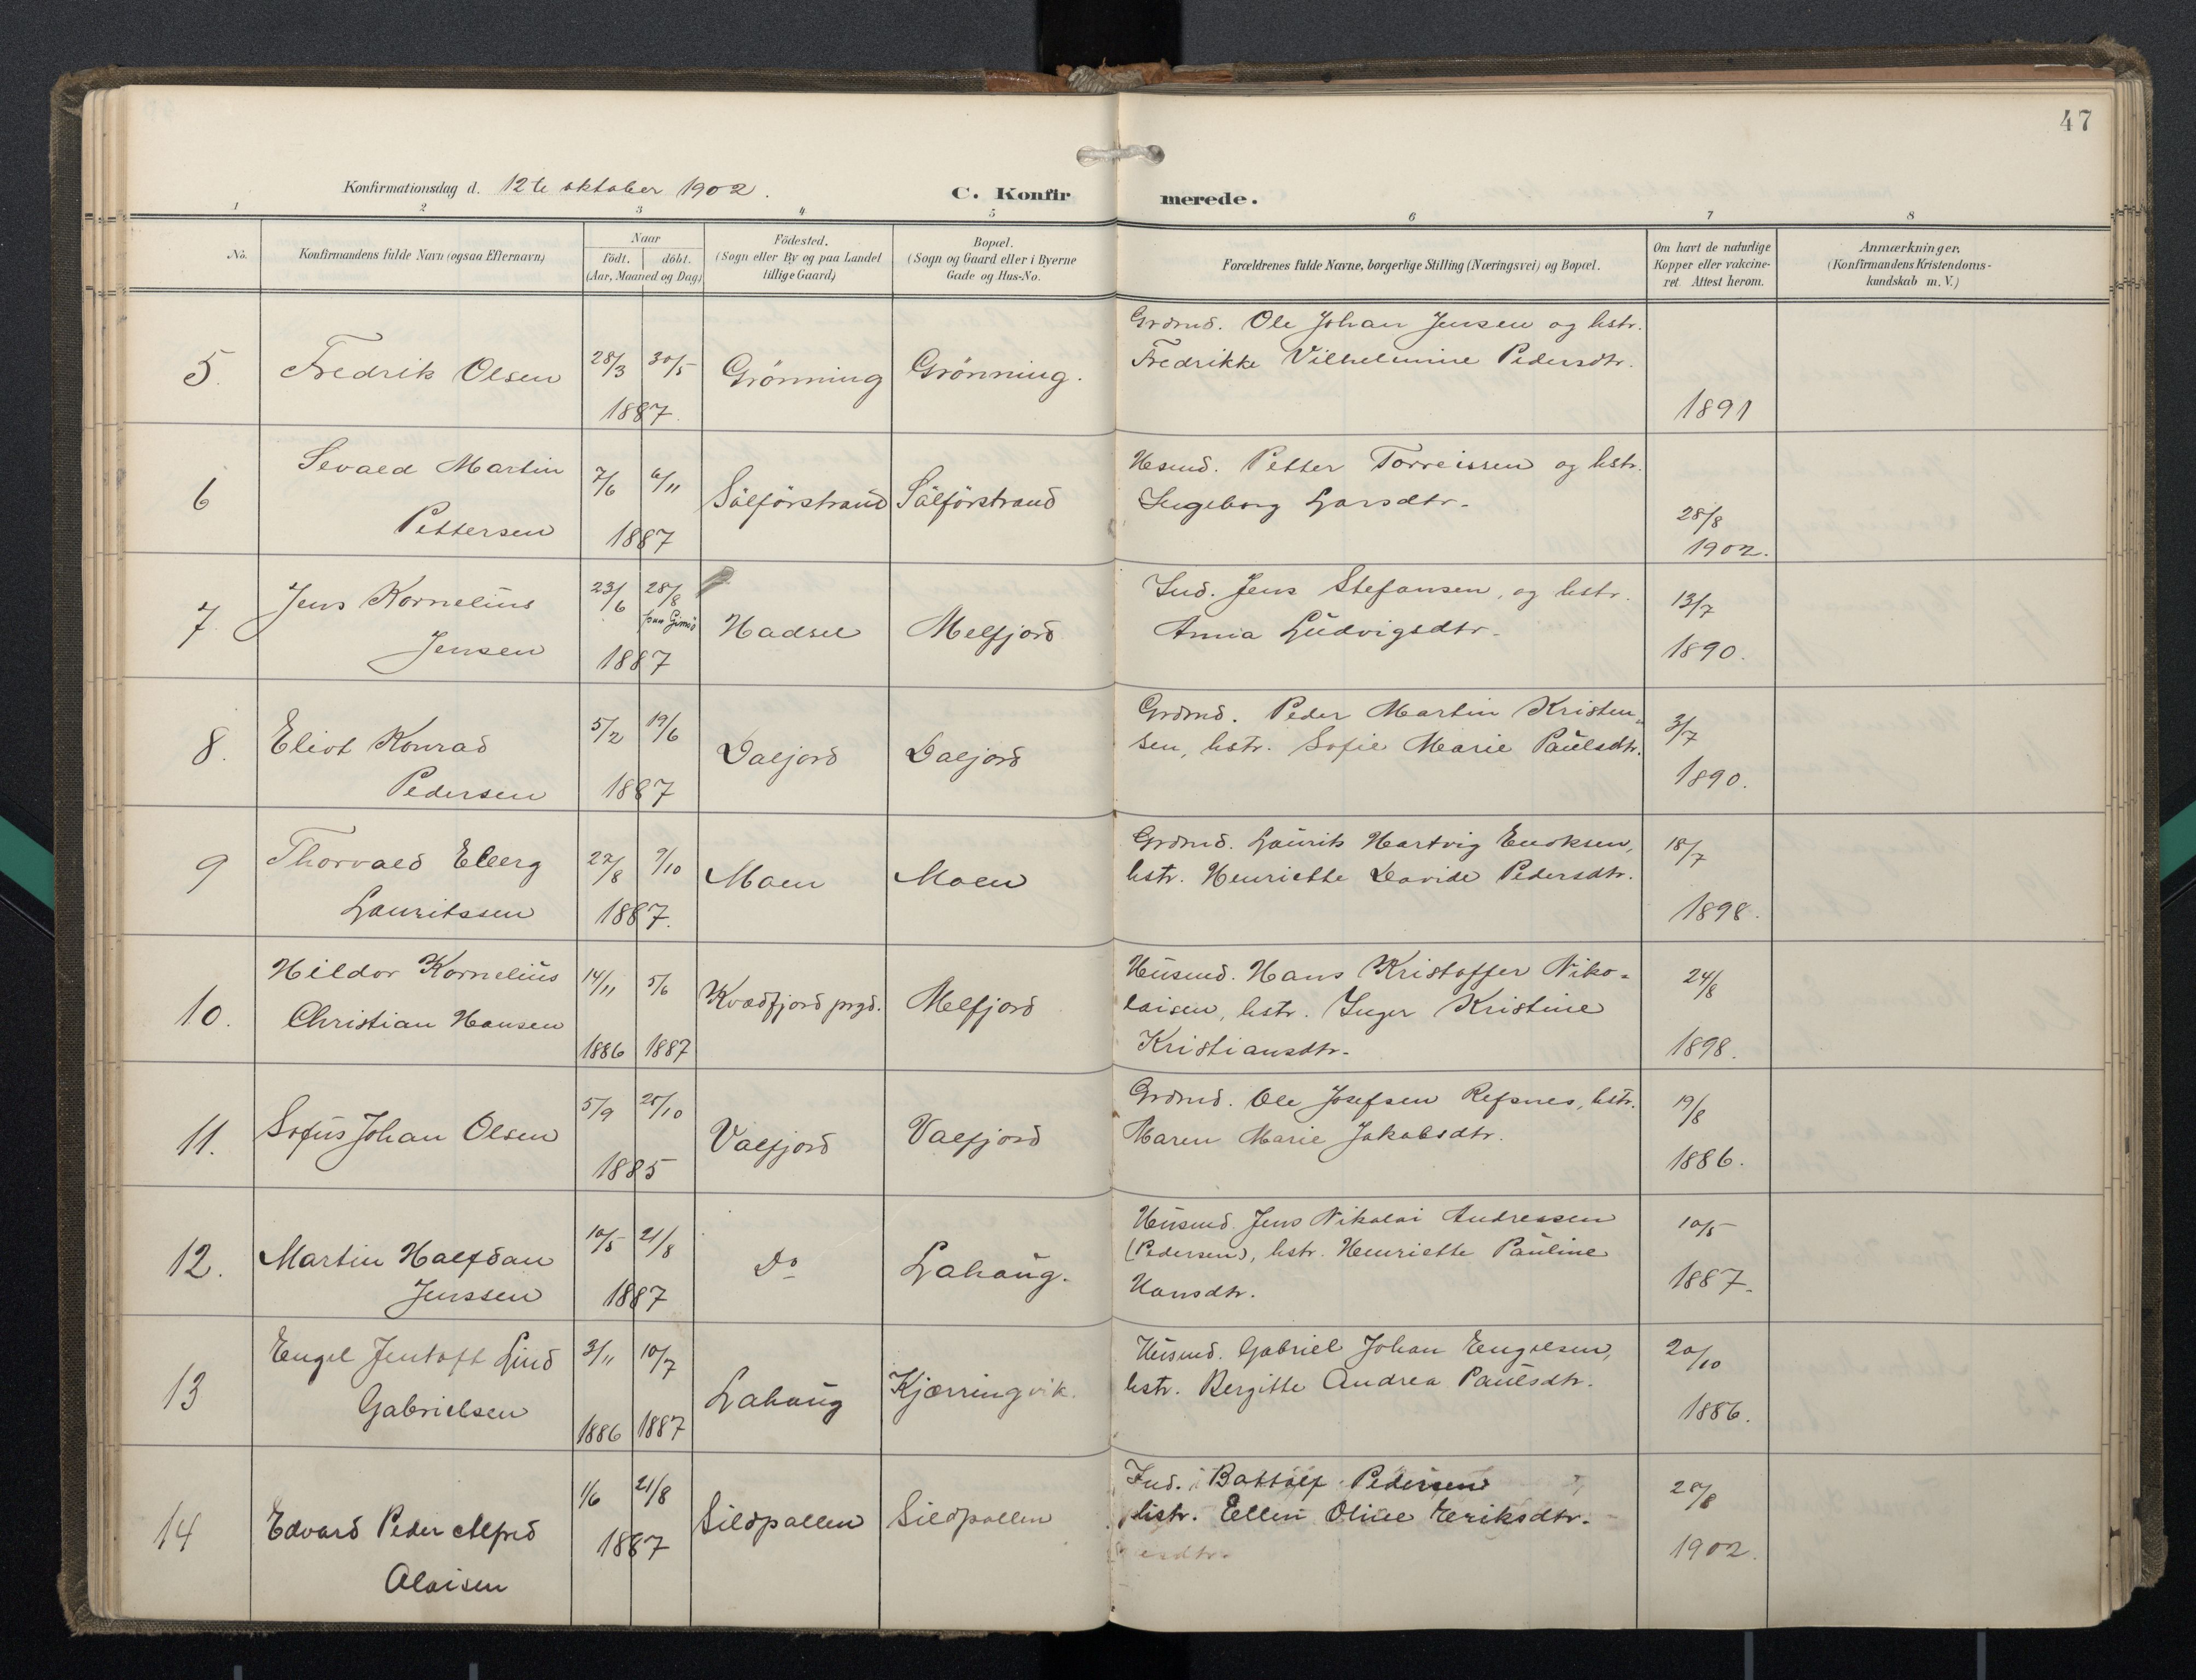 47
Konfirmationsdag d. 12te oktober 1902.
C. Konfirmerede.
1 2 3 4 5 6 7 8
No.
Konfirmandens fulde Navn (ogsaa Efternavn)
Naar
födt. döbt.
(Aar, Maaned og Dag)
Födested.
(Sogn eller By og paa Landet
tillige Gaard)
Bopæl.
(Sogn og Gaard eller i Byerne
Gade og Hus-No.
Forældrenes fulde Navne, borgerlige Stilling (Næringsvei) og Bopæl.
Om havt de naturlige
Kopper eller vakcine-
ret. Attest herom.
Anmærkninger.
(Konfirmandens Kristendoms-
kundskab m. V.)
5. Fredrik Olsen 28/3 30/5 Grönning Grönning.
1887.
Grdmd. Ole Johan Jensen og hstr.
Fredrikke Vilhelmine Pedersdtr.
1891
6 Sevald Martin
Pettersen
7/6 6/11
1887
Sålförstrand Sålförstrand
Hsmd. Petter Torreissen og hstr.
Ingeborg Larsdtr.
28/8
1902.
7. Jens Kornelius
Jensen
23/6 28/8
paa Gimsö
1887
Hadsel Melfjord
Ind. Jens Stefansen, og hstr.
Anna Ludvigsdtr.
13/7
1890.
8. Eliot Konrad
Pedersen
5/2 19/6
1887
Daljord Daljord
Grdmd. Peder Martin Kristen-
sen, hstr. Sofie Marie Paulsdtr.
3/7
1890.
9 Thorvald Elberg
Lauritssen
27/8 9/10
1887.
Moen Moen
Grdmd. Laurits Hartvig Enoksen,
hstr. Henriette Davide Pedersdtr.
18/7
1898.
10. Hildor Kornelius
Christian Hansen
14/11 5/6
1886 1887
Kvædfjord prgd. Melfjord
Husmd. Hans Kristoffer Niko-
laisen, hstr. Inger Kristine
Kristiansdtr.
24/8
1898.
11. Sofus Johan Olsen
5/9 25/10
1885
Valfjord Valfjord
Grdmd. Ole Josefsen Refsnes, hstr.
Maren Marie Jakobsdtr.
19/8
1886.
12. Martin Halfdan
Jenssen
10/5 21/8
1887
Do Lahaug.
Husmd. Jens Nikolai Andressen
(Pedersen), hstr. Henriette Pauline
Hansdtr.
10/5
1887.
13 Engel Jentoft Lind
Gabrielsen
3/11 10/7
1886 1887
Lahaug Kjærringvik.
Husmd. Gabriel Johan Engelsen,
hstr. Bergitte Andrea Paulsdtr.
20/10
1886.
14 Edvard Peder Alfred
Olaisen
1/6 21/8
1887
Sildpallen Sildpollen
Ind. Battolf Pedersen
hstr. Ellen Oline Eriksdtr.
28/8
1902.